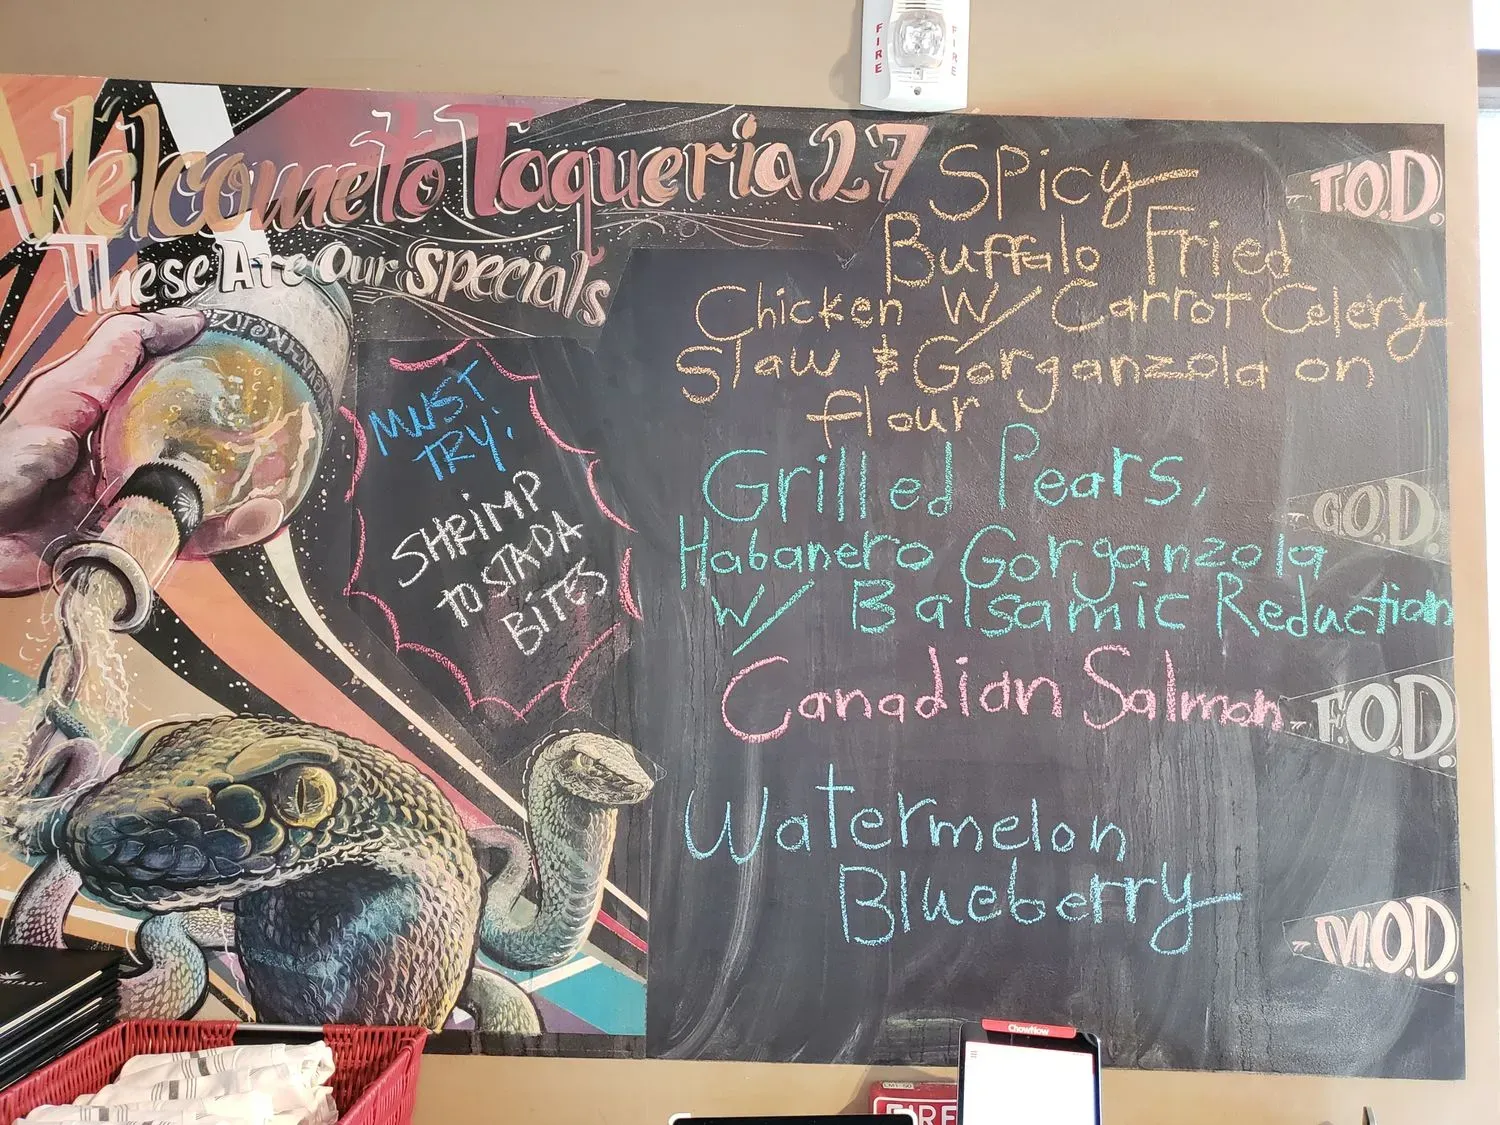 FIRE
FIRE
Welcome to Taqueria 27
These Are Our Specials
MUST
TRY:
SHRIMP
TOSTADA
BITES
Spicy
Buffalo Fried
Chicken w/ Carrot Celery
Slaw & Gorganzola on
flour
T.O.D.
Grilled Pears,
Habanero Gorganzola
w/ Balsamic Reduction
G.O.D.
Canadian Salmon
F.O.D.
Watermelon
Blueberry
M.O.D.
ChowNow
FIRE